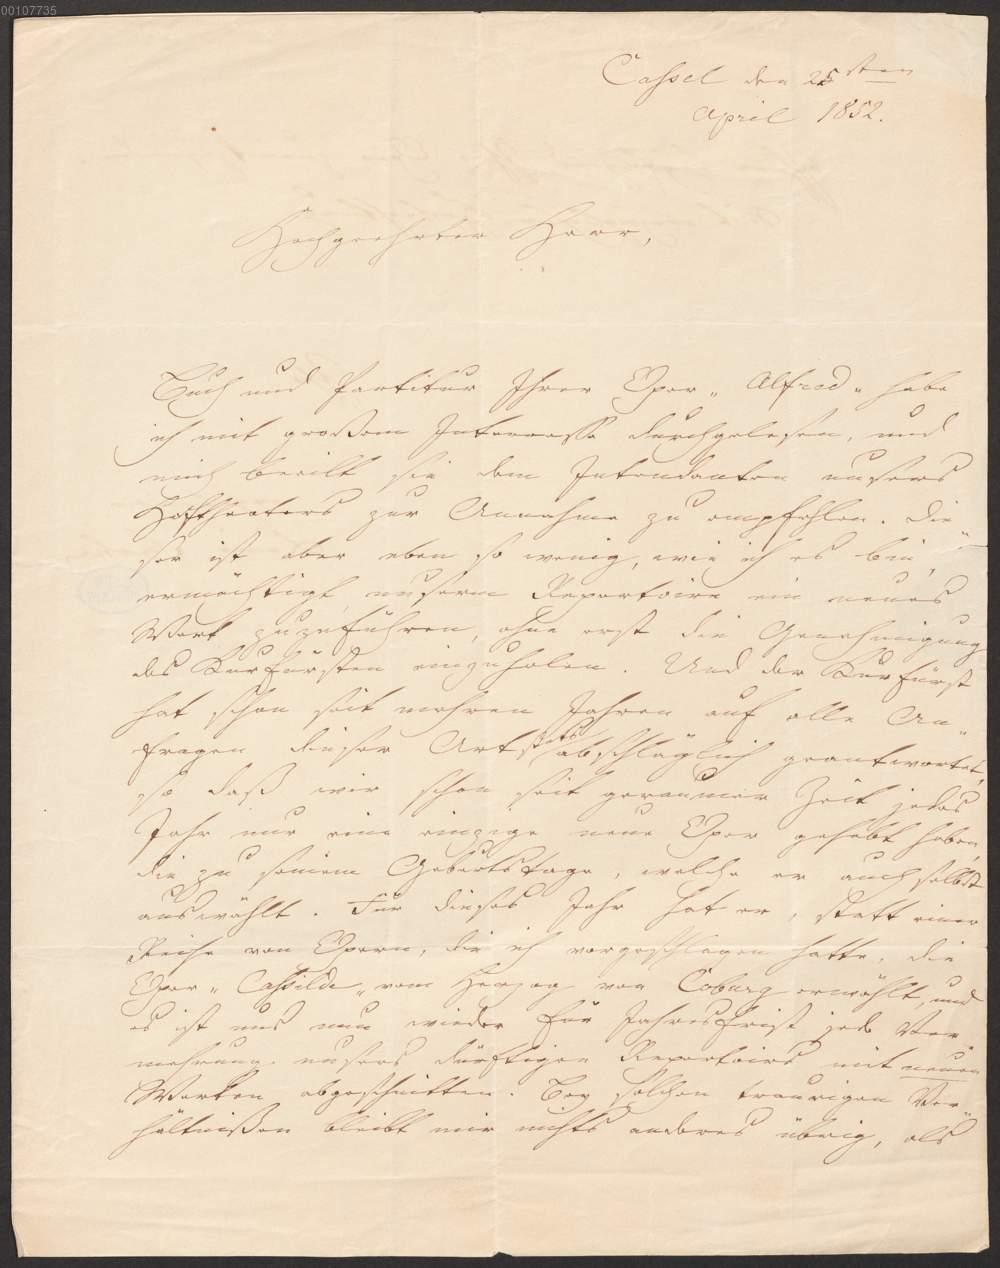 00107735
Cassel den 25sten
April 1852.
Hochgeehrter Herr,
Buch und Partitur Ihrer Oper „Alfred“ habe
ich mit großem Interesse durchgelesen, und
mich beeilt sie dem Intendanten unsers
Hoftheaters zur Annahme zu empfehlen. Die-
ser ist aber eben so wenig, wie ich es bin,
ermächtigt unserm Repertoire ein neues
Werk zuzuführen, ohne erst die Genehmigung
des Kurfürsten einzuholen. Und der Kurfürst
hat schon seit mehren Jahren auf alle An-
fragen dieser Art stets abschläglich geantwortet,
so daß wir schon seit geraumer Zeit jedes
Jahr nur eine einzige neue Oper gehabt haben,
die zu seinem Geburtstage, welche er auch selbst
auswählt. Für dieses Jahr hat er, statt einer
Reihe von Opern, die ich vorgeschlagen hatte, die
Oper „Casilda“ vom Herzog von Coburg erwählt, und
es ist uns nun wieder für Jahresfrist jede Ver-
mehrung unsers dürftigen Repertoirs mit neuen
Werken abgeschnitten. Bey solchen traurigen Ver-
hältnißen bleibt mir nichts anderes übrig, als